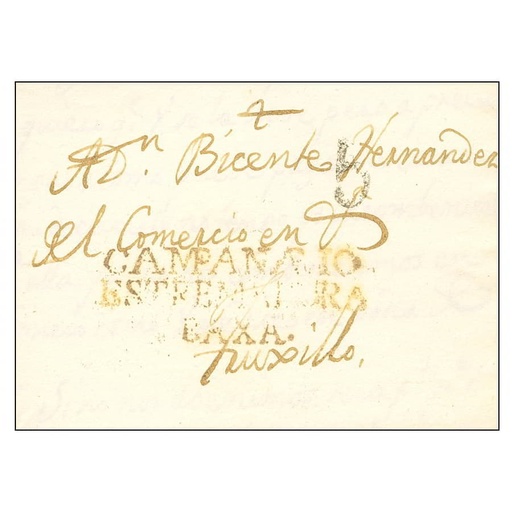 A Dn. Bicente Hernandez
5
del Comercio en
CAMPANARIO.
ESTREMADURA
BAXA.
truxillo,